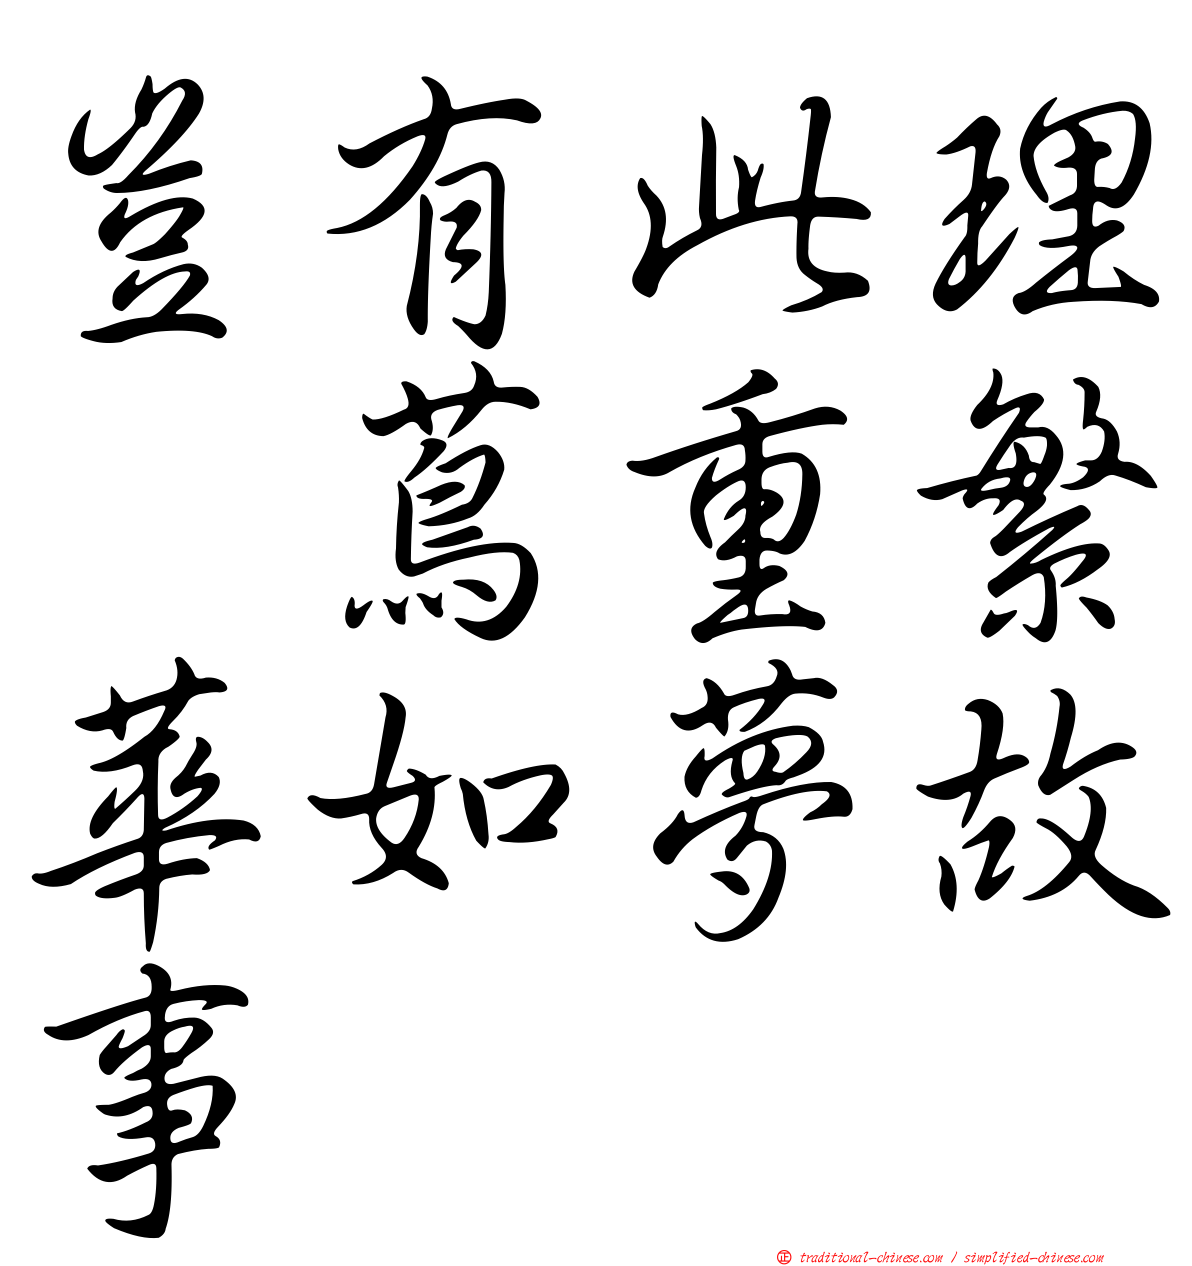 豈有此理
蔦重繁
華如夢故
事
正 traditional-chinese.com / simplified-chinese.com